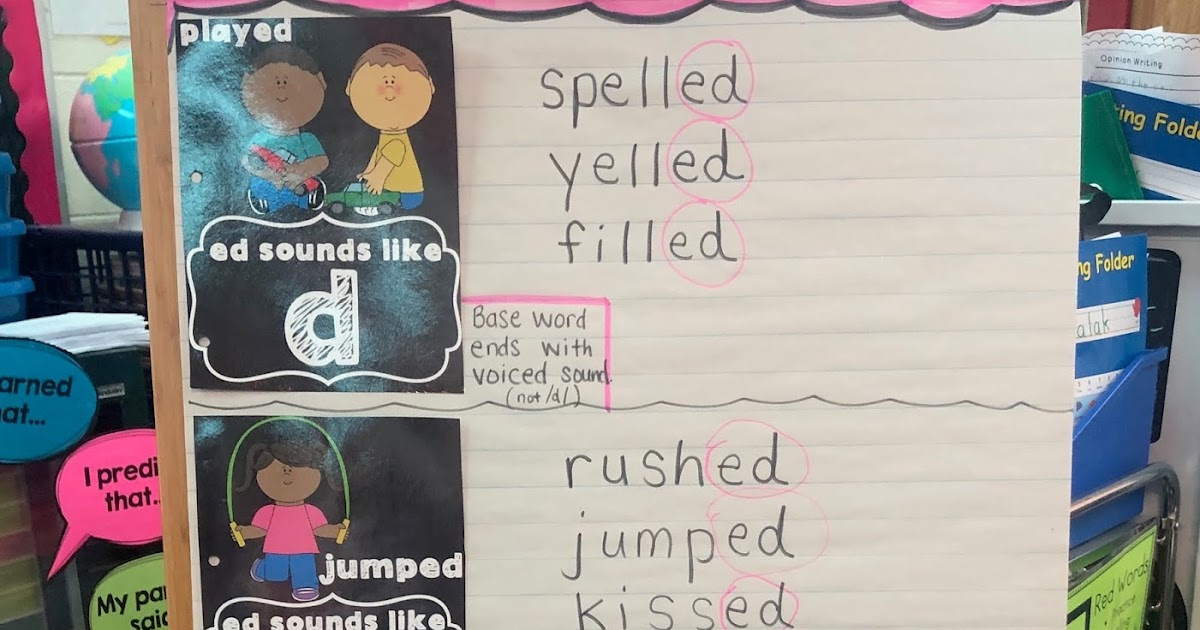 played
ed sounds like
d
spelled
yelled
filled
Base word
ends with
voiced sound.
(not /d/)
jumped
ed sounds like
rushed
jumped
kissed
Opinion Writing
ing Folde
ng Folder
alak
arned
at...
I predi
that..
My pa
said
Red Words